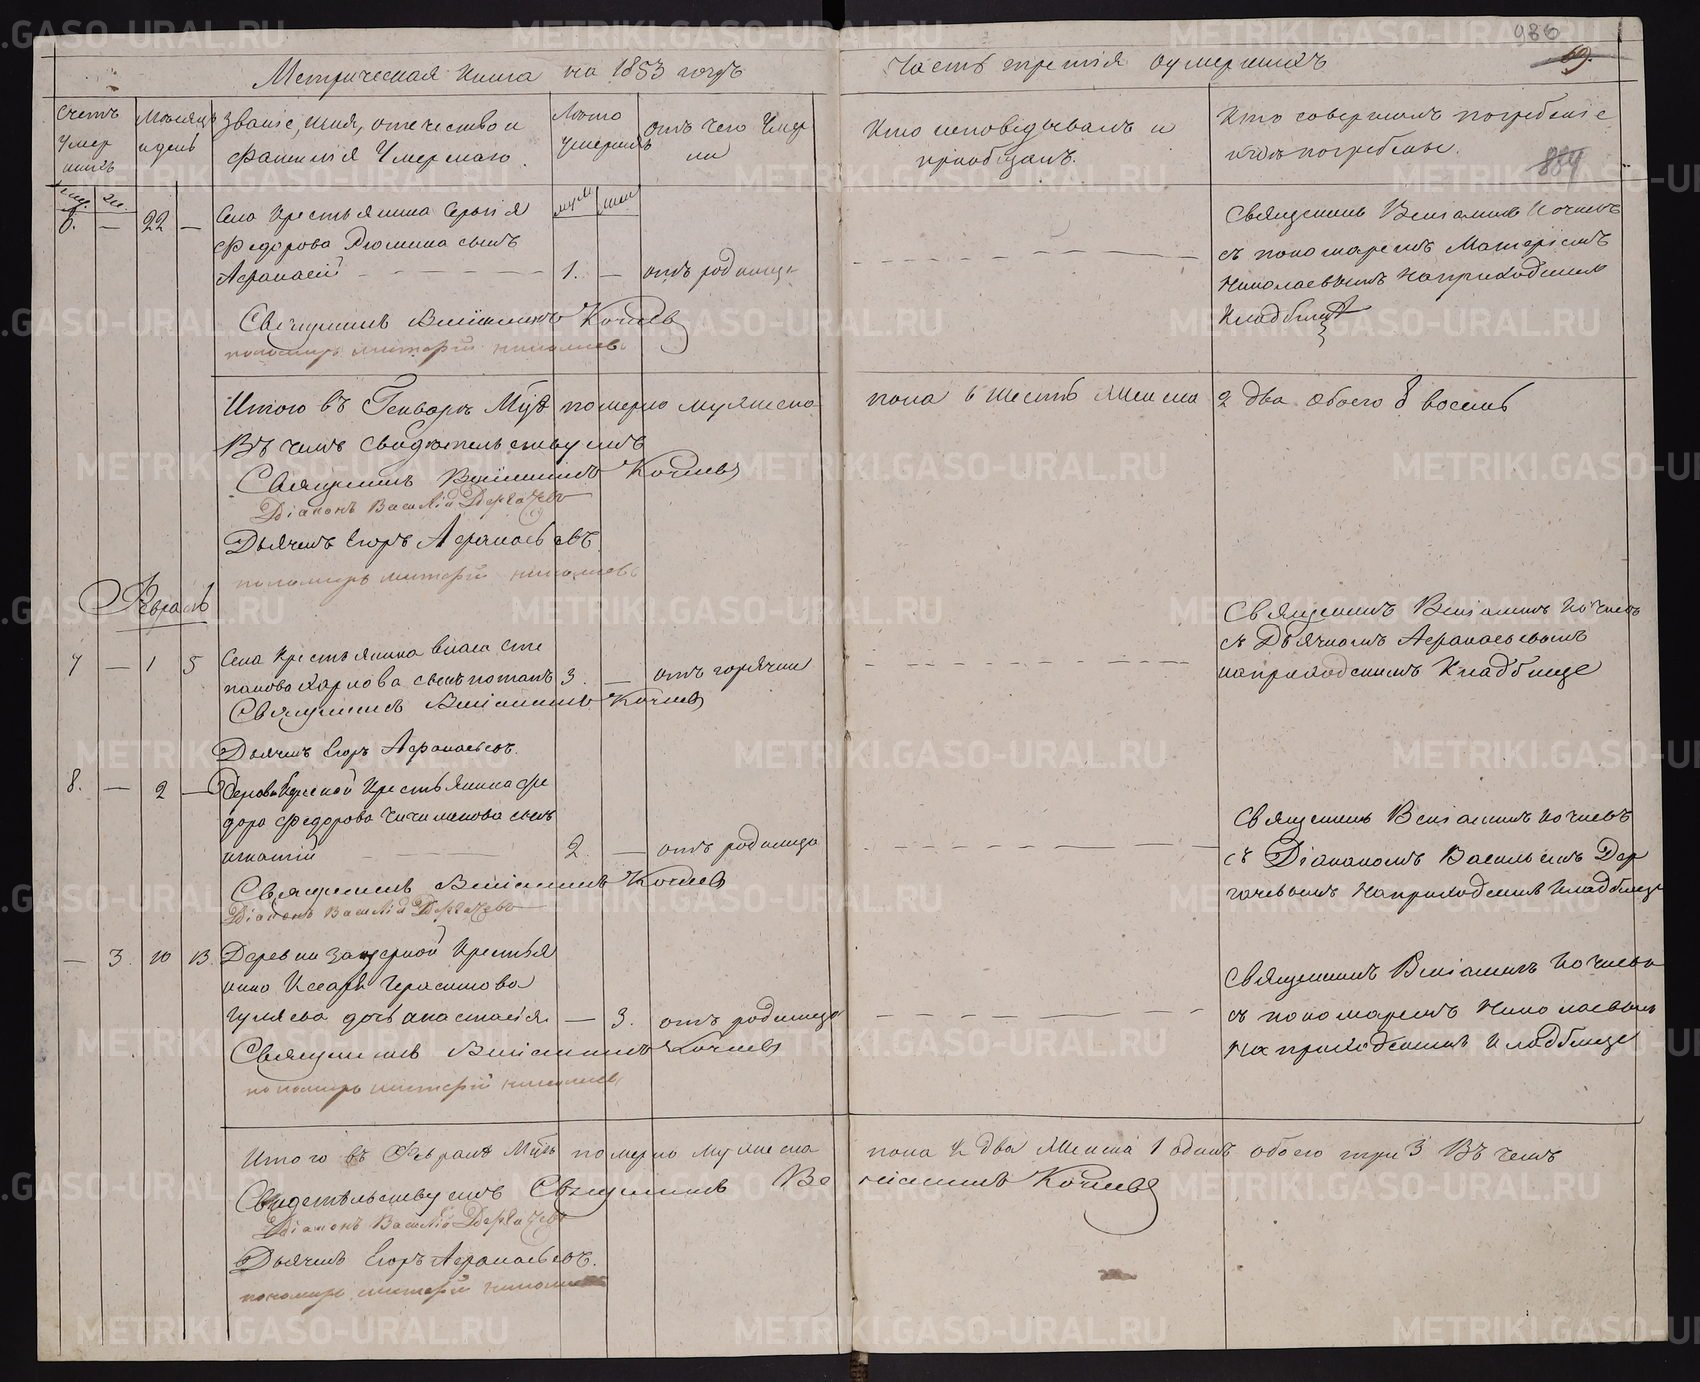 Метрическая книга на 1853 годъ
Часть третія оумершихъ
986
69.
884
Счетъ умер шихъ
Мѣсяцъ и день
Званіе, имя, отечество и
фамилія Умершаго.
Лѣто умершихъ
отъ чего Умер ли
Кто исповедывалъ и
приобщалъ.
Кто совершалъ погребеніе
и где погребены.
6. — 22 —
Села крестьянина Сергія
Федорова сынъ
Афанасій — 1. — отъ родимца
Священникъ Веніаминъ Кочневъ
пономарь Николаевъ
Священникъ Веніаминъ Кочневъ
съ пономаремъ
Николаевымъ на приходскомъ
Кладбищѣ
Итого въ Генварѣ Мцѣ померло мужеска
пола 6 шесть женска 2 два обоего 8 восемь
Въ чемъ свидѣтельствуемъ
Священникъ Веніаминъ Кочневъ
Діаконъ Василій Дергачевъ
Дьячекъ Егоръ Афанасьевъ
пономарь Николаевъ
Февраль
7 — 1 5
Села крестьянина Власа Сте
панова Карпова сынъ потапъ 3. — отъ горячки
Священникъ Веніаминъ Кочневъ
Дьячекъ Егоръ Афанасьевъ.
Священникъ Веніаминъ Кочневъ
съ Дьячкомъ Афанасьевымъ
на приходскомъ Кладбище
8. — 2 —
крестьянина Фе
дора Федорова сынъ
игнатій — 2. — отъ родимца
Священникъ Веніаминъ Кочневъ
Діаконъ Василій Дергачевъ
Священникъ Веніаминъ Кочневъ
съ Діакономъ Васильемъ Дер
гачевымъ на приходскомъ кладбище
— 3. 10 13.
Деревни Заозерной крестья
нина Герасимова
Гуляева дочь анастасія — 3. отъ родимца
Священникъ Веніаминъ Кочневъ
пономарь Николаевъ
Священникъ Веніаминъ Кочневъ
съ пономаремъ Николаевымъ
на приходскомъ Кладбище
Итого въ Февралѣ Мцѣ померло мужеска
пола 2 два женска 1 одинъ обоего три 3 Въ чемъ
Свидетельствуемъ Священникъ Ве
ніаминъ Кочневъ
Діаконъ Василій Дергачевъ
Дьячекъ Егоръ Афанасьевъ.
пономарь
METRIKI.GASO-URAL.RU